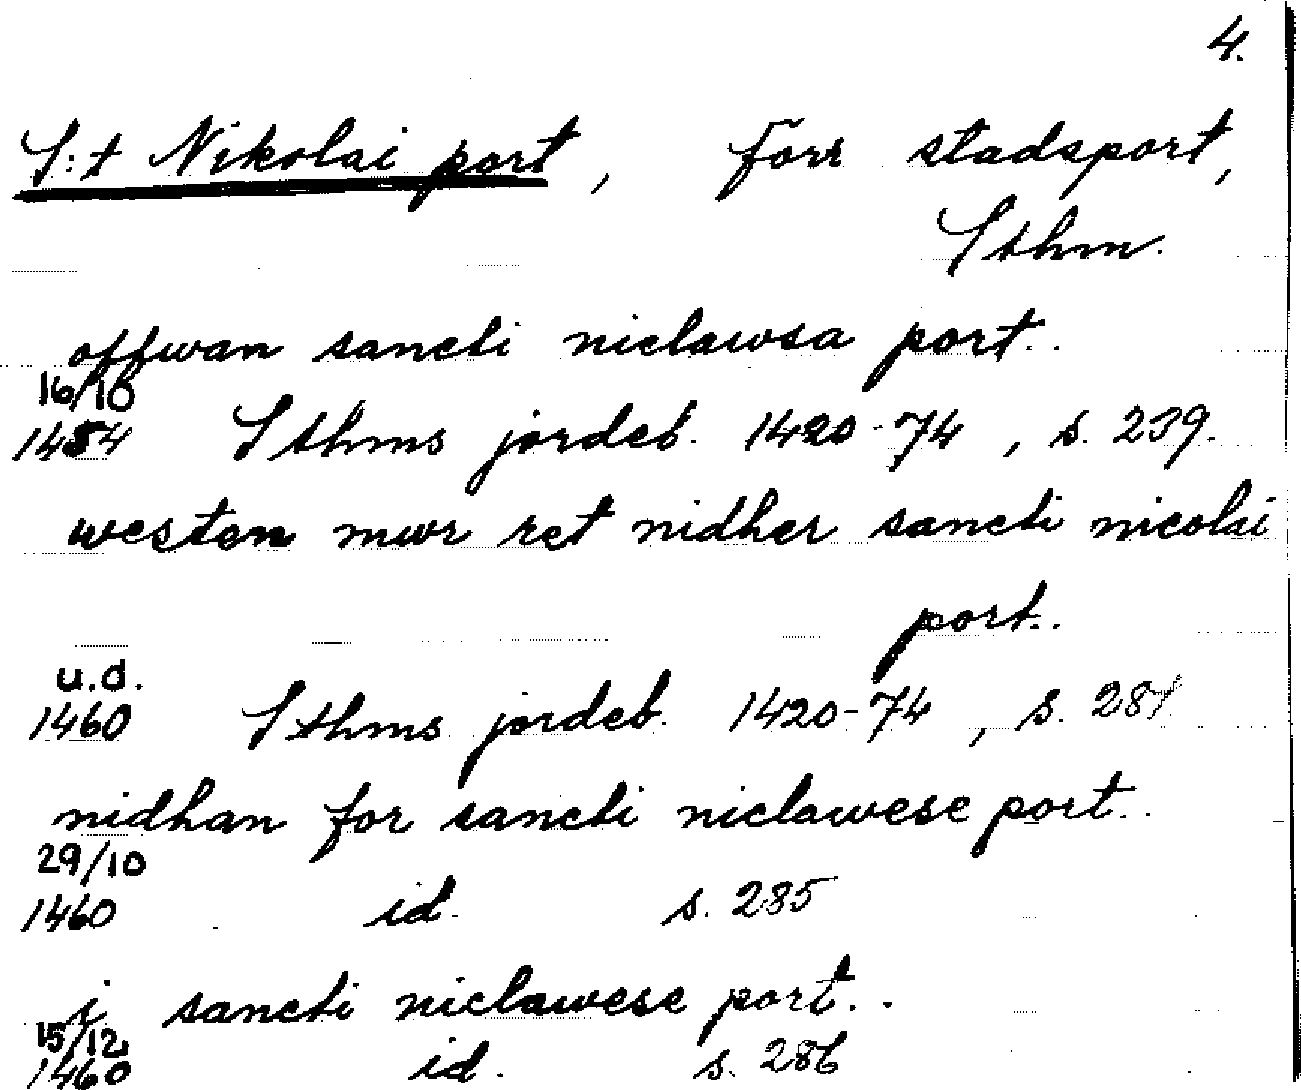 4.
S:t Nikolai port, förr stadsport,
Sthm.
offwan sancti niclawsa port..
16/10
1454 Sthms jordeb. 1420-74, s. 239.
westen mwr ret nidher sancti nicolai
port..
u.d.
1460 Sthms jordeb. 1420-74, s. 281
nidhan for sancti niclawese port..
29/10
1460 id. s. 285
i sancti niclawese port..
15/12
1460 id. s. 286